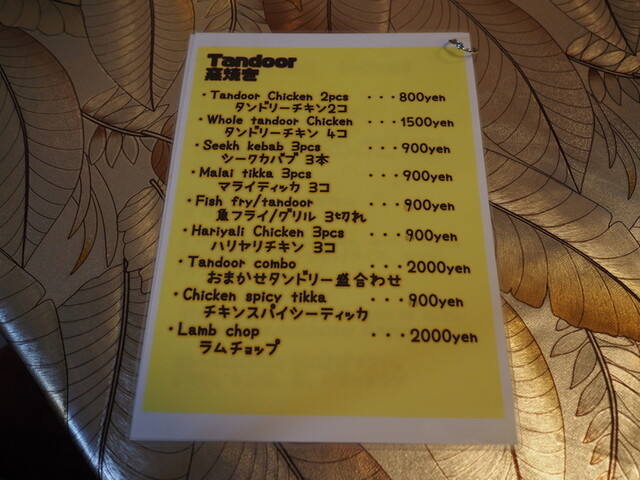 Tandoor
窯焼き
・Tandoor Chicken 2pcs ・・・800yen
タンドリーチキン2コ
・Whole tandoor Chicken ・・・1500yen
タンドリーチキン 4コ
・Seekh kebab 3pcs ・・・900yen
シークカバブ 3本
・Malai tikka 3pcs ・・・900yen
マライティッカ 3コ
・Fish fry/tandoor ・・・900yen
魚フライ/グリル 3切れ
・Hariyali Chicken 3pcs ・・・900yen
ハリヤリチキン 3コ
・Tandoor combo ・・・2000yen
おまかせタンドリー盛合わせ
・Chicken spicy tikka ・・・900yen
チキンスパイシーティッカ
・Lamb chop ・・・2000yen
ラムチョップ